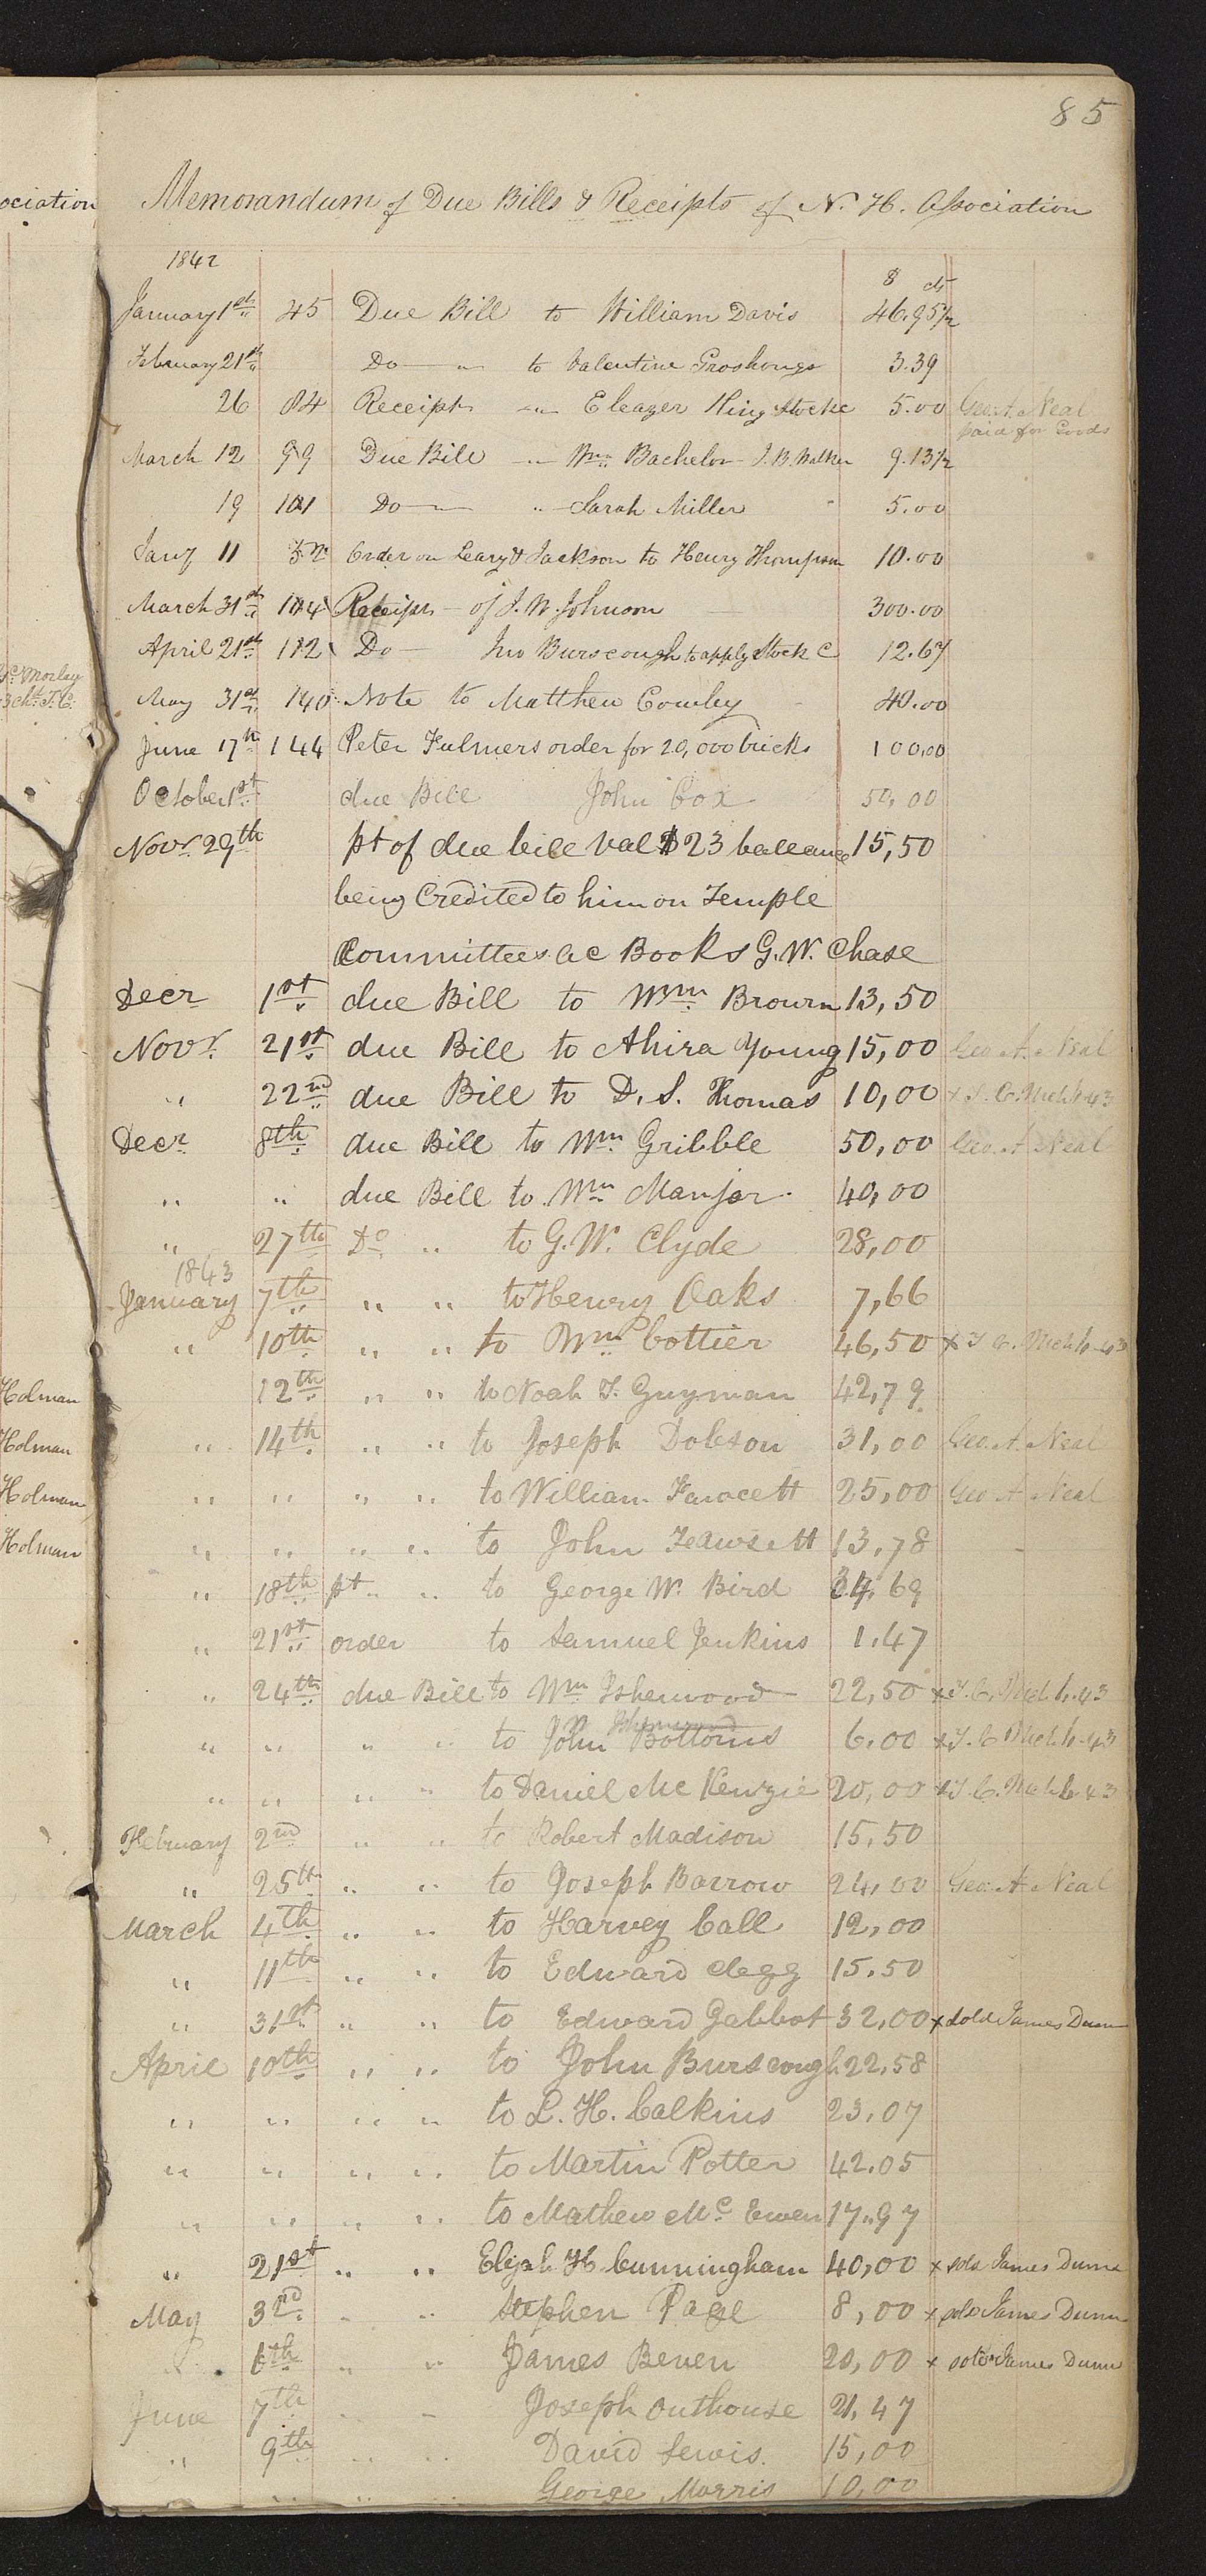 85
ociation
Memorandum of Due Bills & Receipts of N. H. Association
1842
$ cts
January 1st 45 Due Bill to William Davis 46.95½
February 21st Do " to Valentine Groshongs 3.39
26 84 Receipt " Eleazer King Stock 5.00 Geo. A. Neal
paid for Goods
March 12 99 Due Bill " Wm Bachelor J. B. Walker 9.13½
19 101 Do " Sarah Miller 5.00
Jany 11 Order on Leary & Jackson to Henry Thompson 10.00
March 31st 104 Receipts of J. W. Johnson 300.00
April 21st 112 Do Jno Burscough to apply Stock C 12.67
Morley
May 31st 140 Note to Matthew Cowley 40.00
June 17th 144 Peter Fulmers order for 20,000 bricks 100,00
October 1st due Bill John Cox 50,00
Novr 29th pt of due bill val $23 balleance 15,50
being Credited to him on Temple
Committees ac Books G. W. Chase
Decr 1st due Bill to Wm Brown 13,50
Novr 21st due Bill to Ahira Young 15,00 Geo. A. Neal
" 22nd due Bill to D. S. Thomas 10,00 x T. C. 43
Decr 8th due Bill to Wm Gribble 50,00 Geo. A Neal
" " due Bill to Wm Manjar 40,00
" 27th Do " to G. W. Clyde 28,00
1843
January 7th " " to Henry Oaks 7,66
" 10th " " to Wm Cottier 46,50 x T. C. 43
Holman
12th " " to Noah T. Guyman 42,79
Holman
" 14th " " to Joseph Dobson 31,00 Geo. A. Neal
Holman
" " " " to William Fawcett 25,00 Geo A Neal
Holman
" " " " to John Feawsett 13,78
" 18th pt " " to George W. Bird 34,69
" 21st order to Samuel Jenkins 1.47
" 24th due Bill to Wm Isherwood 22,50 x T. C. 43
Isherwood
" " " " to John Bottoms 6.00 x T. C 43
" " " " to Daniel Mc Kenzie 20,00 x T. C. 43
February 2nd " " to Robert Madison 15,50
" 25th " " to Joseph Barrow 24,00 Geo. A Neal
March 4th " " to Harvey Call 12,00
" 11th " " to Edward Clegg 15.50
" 31st " " to Edward Gabbot 32,00 x sold James Dunn
April 10th " " to John Burscough 22,58
" " " " to L. H. Calkins 23,07
" " " " to Martin Potter 42.05
" " " " to Mathew Mc Ewen 17.97
" 21st " " Elijah H Cunningham 40,00 x sold James Dunn
May 3rd " " Stephen Page 8,00 x sold James Dunn
" 6th " " James Beven 20,00 x sold James Dunn
June 7th " " Joseph Outhouse 21,47
" 9th " " David Lewis. 15,00
" " " " George Morris 10,00